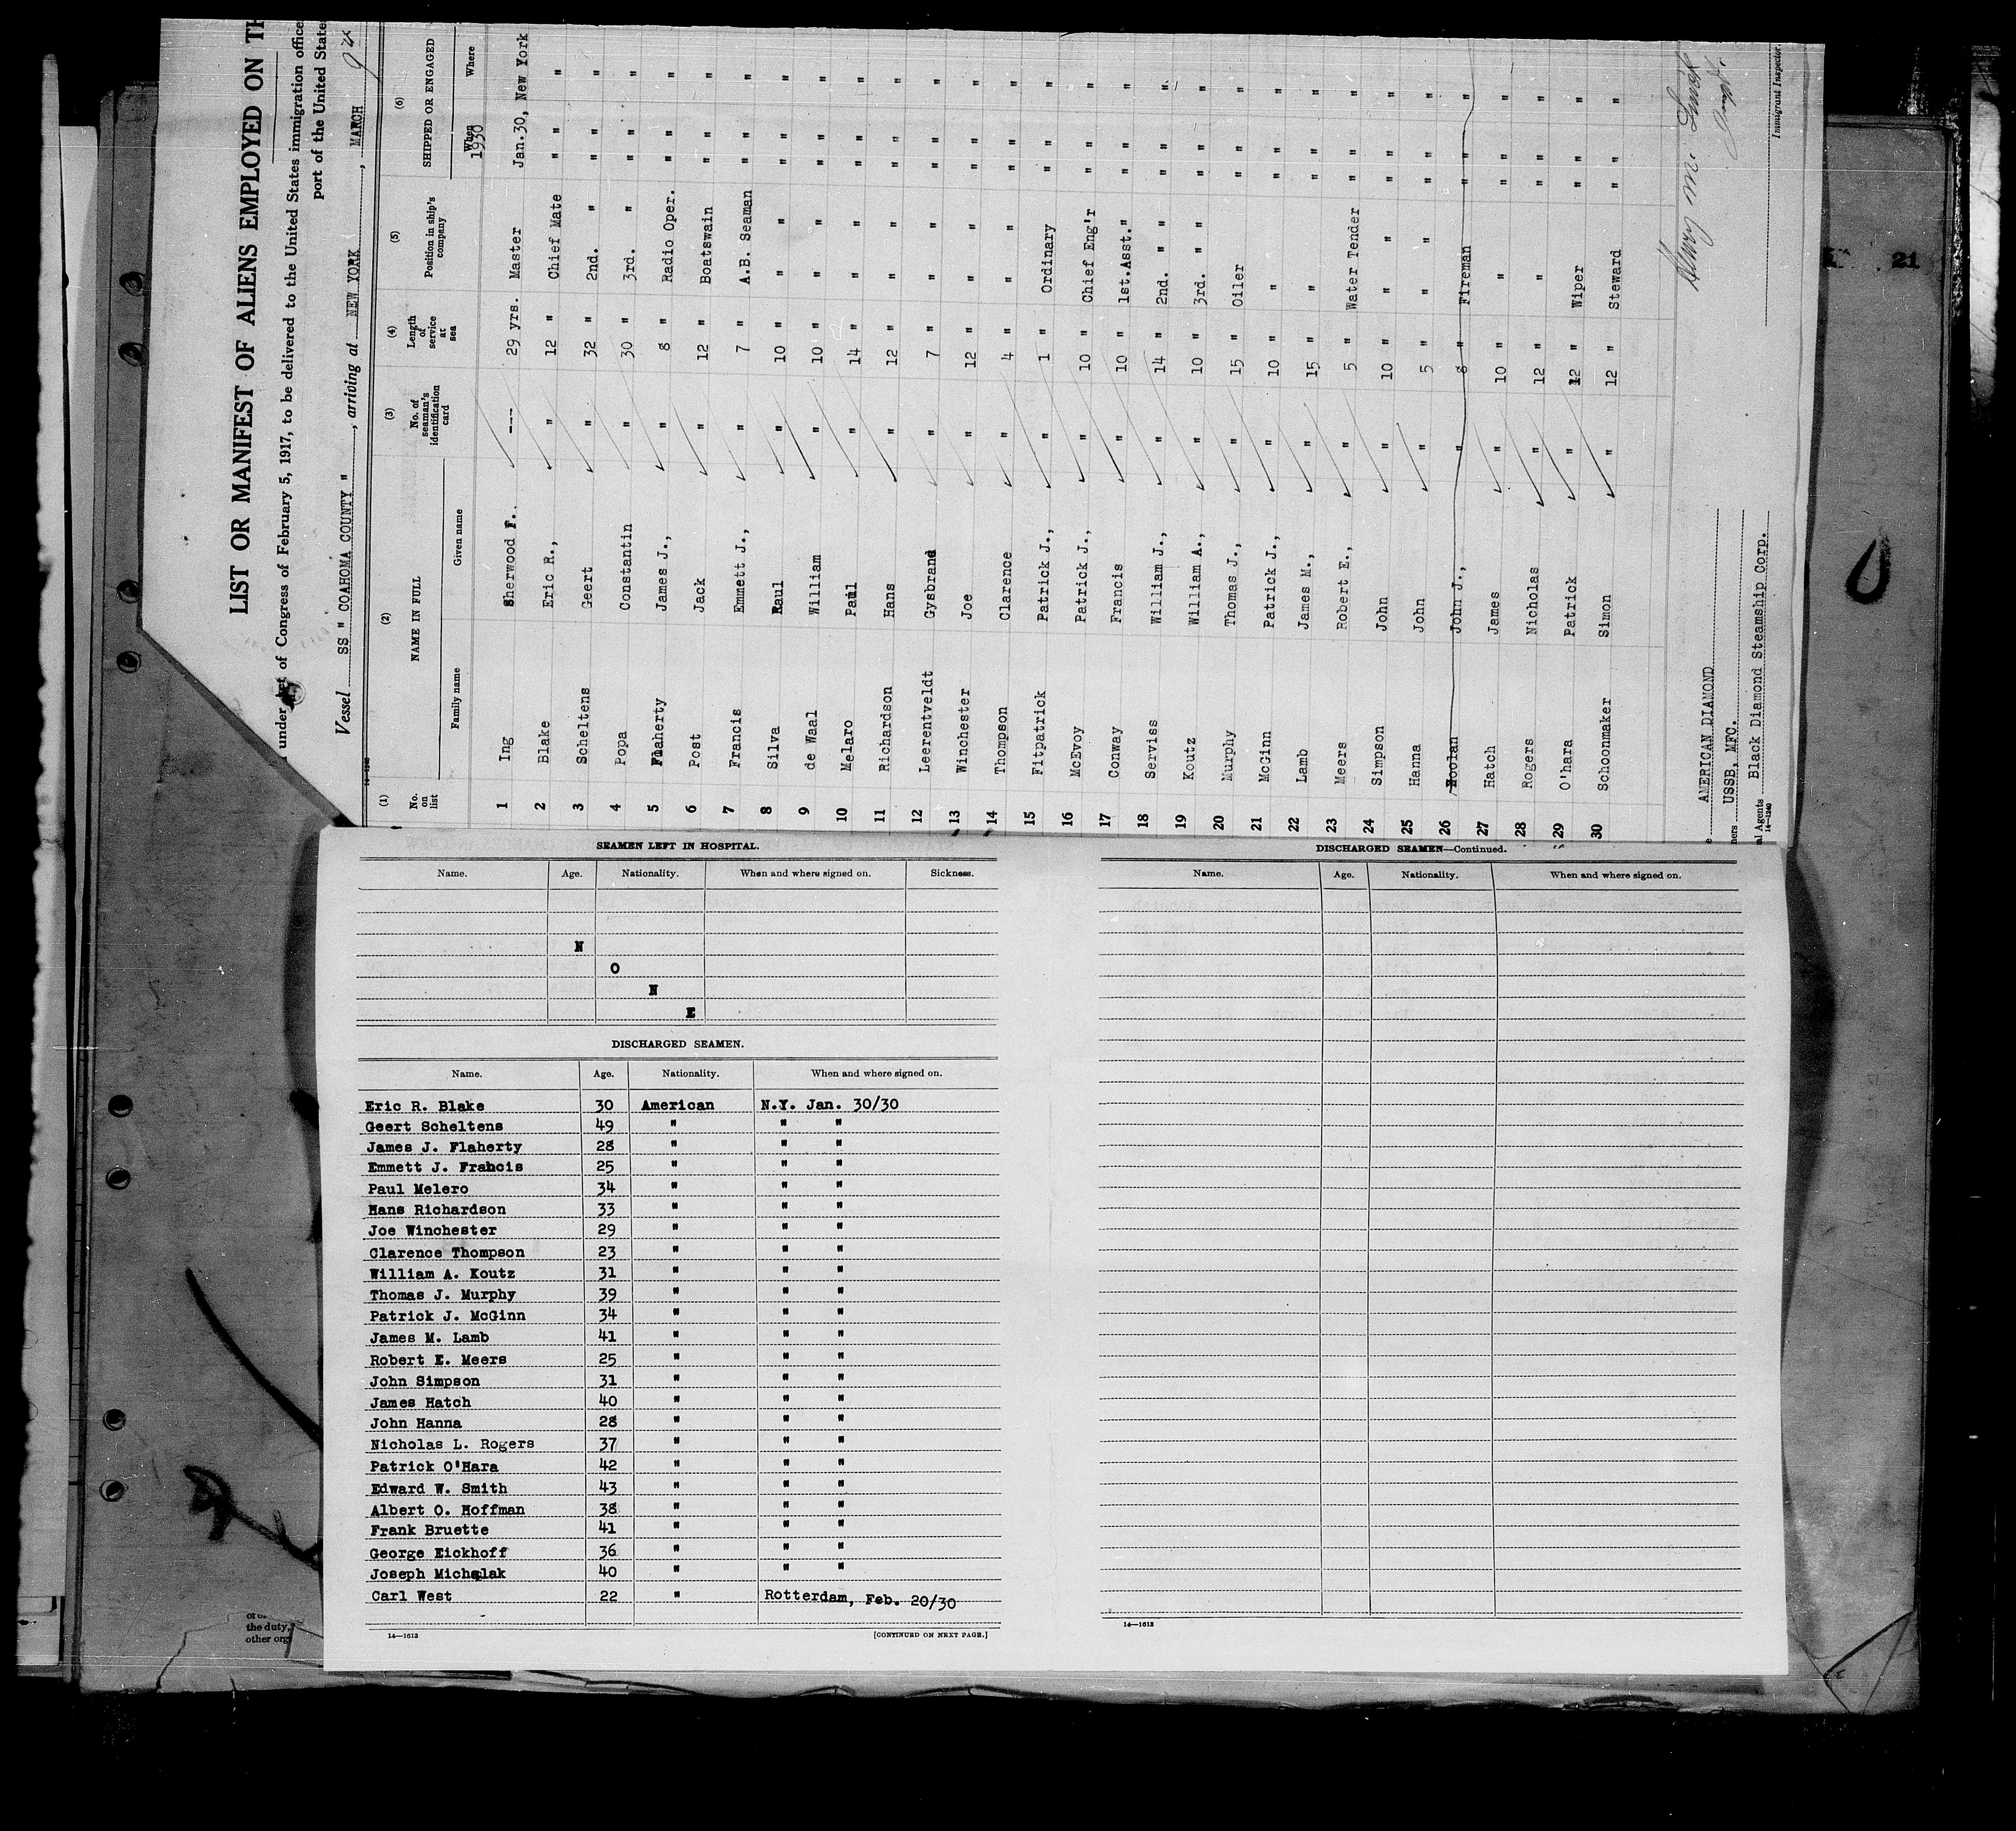 LIST OR MANIFEST OF ALIENS EMPLOYED ON TH
under Act of Congress of February 5, 1917, to be delivered to the United States immigration office
port of the United State
Vessel SS " COAHOMA COUNTY ", arriving at NEW YORK, MARCH 9th
(1) (2) (3) (4) (5) (6)
No. on list NAME IN FULL No. of seaman's identification card Length of service at sea Position in ship's company SHIPPED OR ENGAGED
Family name Given name When Where
1930
1 Ing Sherwood F. --- 29 yrs. Master Jan.30, New York
2 Blake Eric R., " 12 " Chief Mate " " "
3 Scheltens Geert " 32 " 2nd. " " " "
4 Popa Constantin " 30 " 3rd. " " " "
5 Flaherty James J., " 8 " Radio Oper. " " "
6 Post Jack " 12 " Boatswain " " "
7 Francis Emmett J., " 7 " A.B. Seaman " " "
8 Silva Raul " 10 " " " " " "
9 de Waal William " 10 " " " " " "
10 Melaro Paul " 14 " " " " " "
11 Richardson Hans " 12 " " " " " "
12 Leerentveldt Gysbrand " 7 " " " " " "
13 Winchester Joe " 12 " " " " " "
14 Thompson Clarence " 4 " " " " " "
15 Fitpatrick Patrick J., " 1 " Ordinary " " "
16 McEvoy Patrick J., " 10 " Chief Eng'r " " "
17 Conway Francis " 10 " 1st.Asst." " " "
18 Serviss William J., " 14 " 2nd. " " " " "
19 Koutz William A., " 10 " 3rd. " " " " "
20 Murphy Thomas J., " 15 " Oiler " " "
21 McGinn Patrick J., " 10 " " " " "
22 Lamb James M., " 15 " " " " "
23 Meers Robert E., " 5 " Water Tender " " "
24 Simpson John " 10 " " " " " "
25 Hanna John " 5 " " " " " "
26 John J., " 8 " Fireman " " "
27 Hatch James " 10 " " " " "
28 Rogers Nicholas " 12 " " " " "
29 O'hara Patrick " 12 " Wiper " " "
30 Schoonmaker Simon " 12 " Steward " " "
AMERICAN DIAMOND
ners USSB, MFC.
al Agents Black Diamond Steamship Corp.
14-1240
Immigrant Inspector.
21
SEAMEN LEFT IN HOSPITAL.
Name. Age. Nationality. When and where signed on. Sickness.
N
O
N
E
DISCHARGED SEAMEN.
Name. Age. Nationality. When and where signed on.
Eric R. Blake 30 American N.Y. Jan. 30/30
Geert Scheltens 49 " " "
James J. Flaherty 28 " " "
Emmett J. Francis 25 " " "
Paul Melero 34 " " "
Hans Richardson 33 " " "
Joe Winchester 29 " " "
Clarence Thompson 23 " " "
William A. Koutz 31 " " "
Thomas J. Murphy 39 " " "
Patrick J. McGinn 34 " " "
James M. Lamb 41 " " "
Robert E. Meers 25 " " "
John Simpson 31 " " "
James Hatch 40 " " "
John Hanna 28 " " "
Nicholas L. Rogers 37 " " "
Patrick O'Hara 42 " " "
Edward W. Smith 43 " " "
Albert O. Hoffman 38 " " "
Frank Bruette 41 " " "
George Eickhoff 36 " " "
Joseph Michalak 40 " " "
Carl West 22 " Rotterdam, Feb. 20/30
14—1613
[CONTINUED ON NEXT PAGE.]
DISCHARGED SEAMEN—Continued.
Name. Age. Nationality. When and where signed on.
14—1613
the duty,
other org